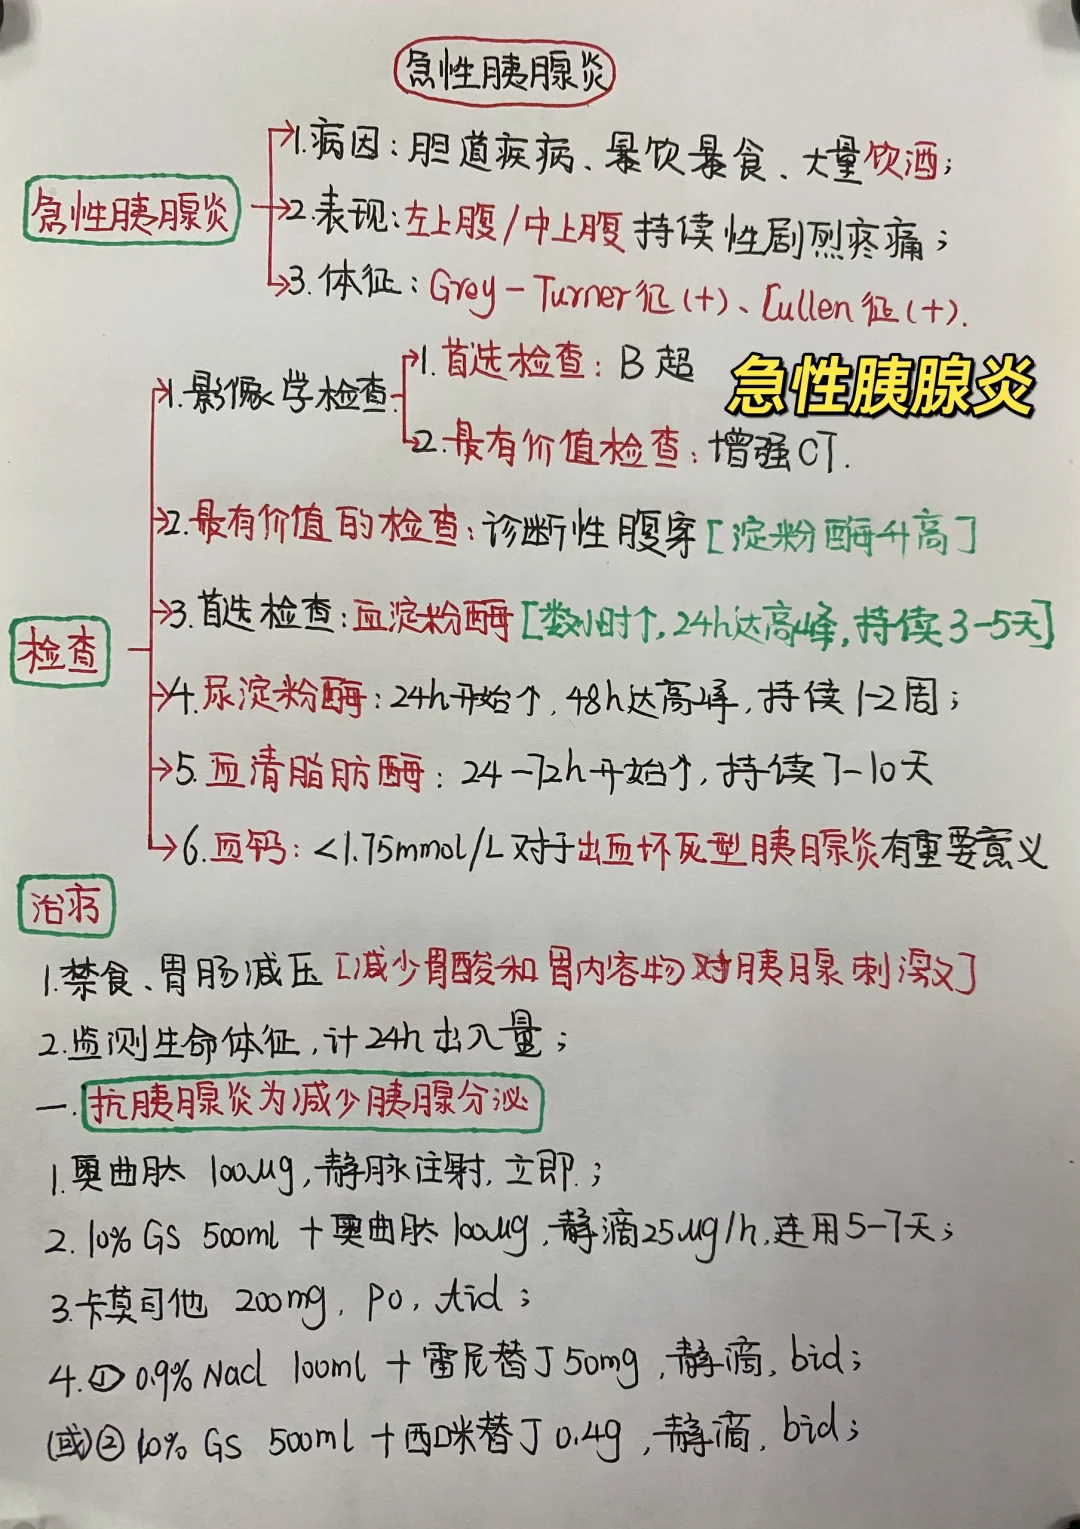 急性胰腺炎
急性胰腺炎
1.病因：胆道疾病、暴饮暴食、大量饮酒；
2.表现：左上腹/中上腹持续性剧烈疼痛；
3.体征：Grey-Turner征(+)、Cullen征(+).
检查
1.影像学检查
1.首选检查：B超
急性胰腺炎
2.最有价值检查：增强CT.
2.最有价值的检查：诊断性腹穿[淀粉酶升高]
3.首选检查：血淀粉酶[数小时↑,24h达高峰,持续3-5天]
4.尿淀粉酶：24h开始↑,48h达高峰,持续1-2周；
5.血清脂肪酶：24-72h开始↑,持续7-10天
6.血钙：<1.75mmol/L对于出血坏死型胰腺炎有重要意义
治疗
1.禁食、胃肠减压[减少胃酸和胃内容物对胰腺刺激]
2.监测生命体征,计24h出入量；
一.抗胰腺炎为减少胰腺分泌
1.奥曲肽 100μg,静脉注射,立即.；
2.10%GS 500ml+奥曲肽100μg,静滴25μg/h,连用5-7天；
3.卡莫司他 200mg,po,tid；
4.①0.9%Nacl 100ml+雷尼替丁50mg,静滴,bid；
(或)②10%GS 500ml+西咪替丁0.4g,静滴,bid；